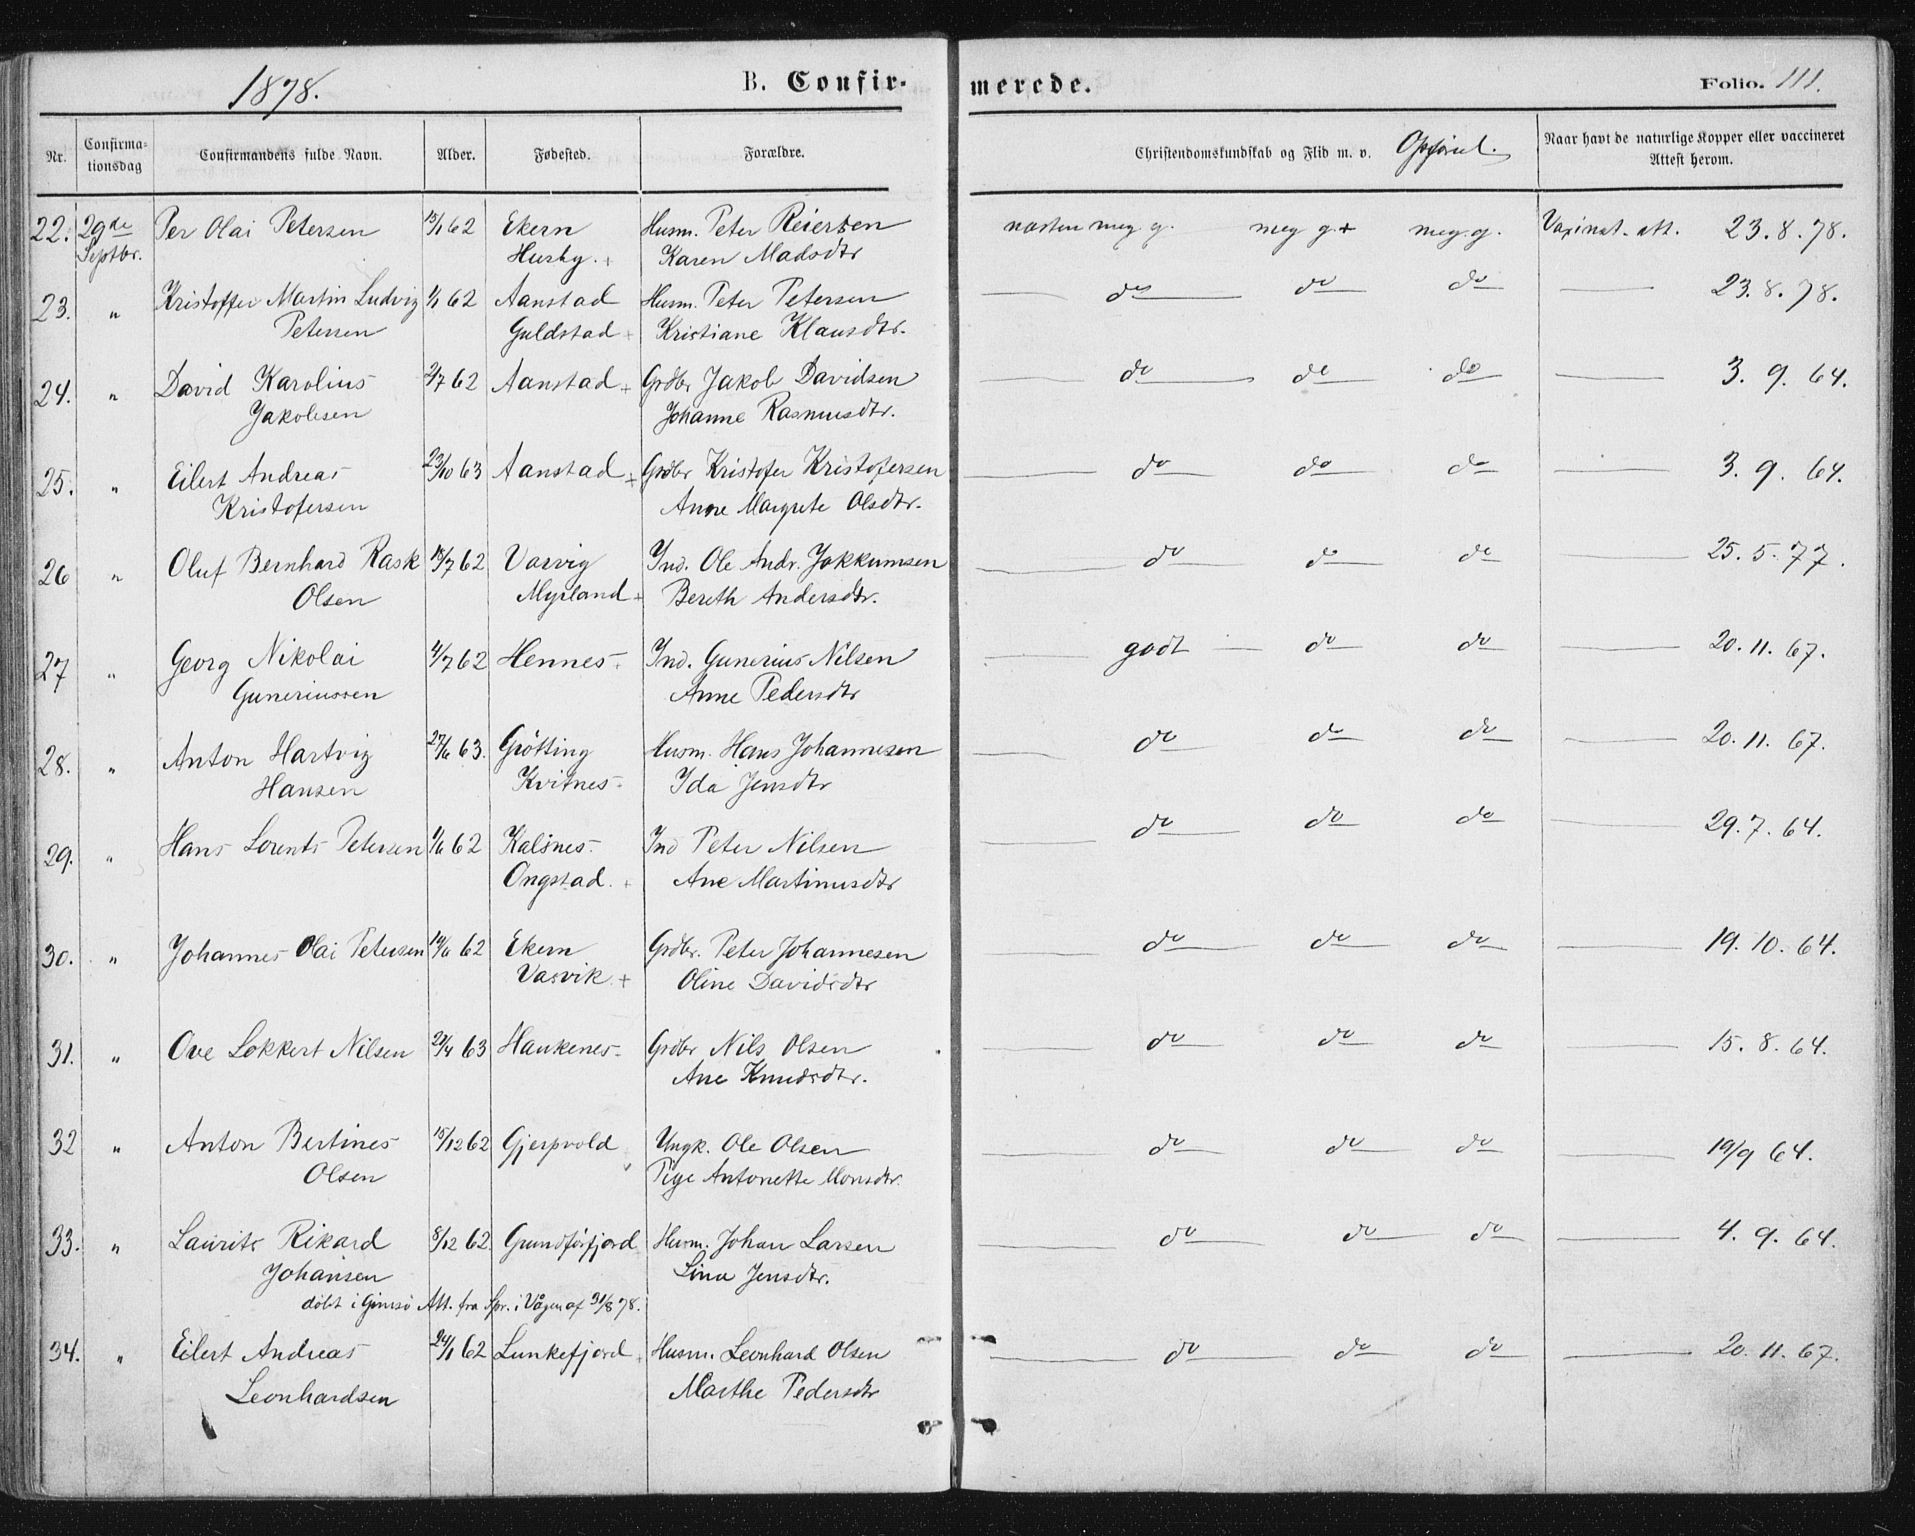 1878. B. Confir- merede. Folio. 111.
Nr. Confirma- tionsdag Confirmandens fulde Navn. Alder. Fødested. Forældre. Christendomskundskab og Flid m. v. Opførsel. Naar havt de naturlige Kopper eller vaccineret Attest herom.
22. 29de Per Olai Petersen 62 Ekern Husm. Peter Reiersen næsten meg g. meg g+ meg. g. Vaxinat. att. 23.8.78.
Septbr. Husby. + Karen Madsdtr
23. " Kristoffer Martin Ludvig 1/1 62 Aanstad Husm. Peter Petersen do do do 23.8.78.
Petersen Guldstad + Kristiane Klausdtr.
24. " David Karolius 2/7 62 Aanstad + Grdbr Jakob Davidsen do do do 3. 9. 64.
Jakobsen Johanne Rasmusdtr.
25. " Eilert Andreas 23/10 63 Aanstad + Grdbr Kristofer Kristofersen do do do 3. 9. 64.
Kristofersen Anne Margrete Olsdtr.
26 " Oluf Bernhard Rask 18/7 62 Vasvig Ind. Ole Andr. Jokkumsen do do do 25. 5. 77.
Olsen Myrland + Bereth Andersdtr.
27 " Georg Nikolai 4/7 62 Hennes + Ind. Gunerius Nilsen godt do do 20. 11. 67.
Guneriussen Anne Pedersdtr
28. " Anton Hartvig 27/6 63. Grötting Husm. Hans Johannesen do do do 20. 11. 67.
Hansen Kvitnes Ida Jensdtr
29. " Hans Lorents Petersen 1/6 62 Kalsnes Ind Peter Nilsen do do do 29. 7. 64.
Ongstad. + Ane Martinusdtr
30. " Johannes Olai Petersen 19/6 62 Ekern Grdbr. Peter Johannesen do do do 19. 10. 64.
Vasvik. + Oline Davidsdtr
31. " Ove Lokkert Nilsen 20/4 63 Haukenes Grdbr Nils Olsen do do do 15. 8. 64.
Ane Knudsdtr.
32 " Anton Bertines 15/12 62 Gjerpvold Ungk. Ole Olsen do do do 19/9 64.
Olsen Pige Antonette Monsdtr.
33. " Laurits Rikard 8/12 62 Grundforfjord Husm. Johan Larsen do do do 4. 9. 64.
Johansen Lina Jensdtr.
döbt i Gimsö Att. fra Spr. i Vågen af 31/8 78.
34. " Eilert Andreas 24/1 62 Lunkefjord + Husm. Leonhard Olsen do do do 20. 11. 67.
Leonhardsen Marthe Pedersdtr